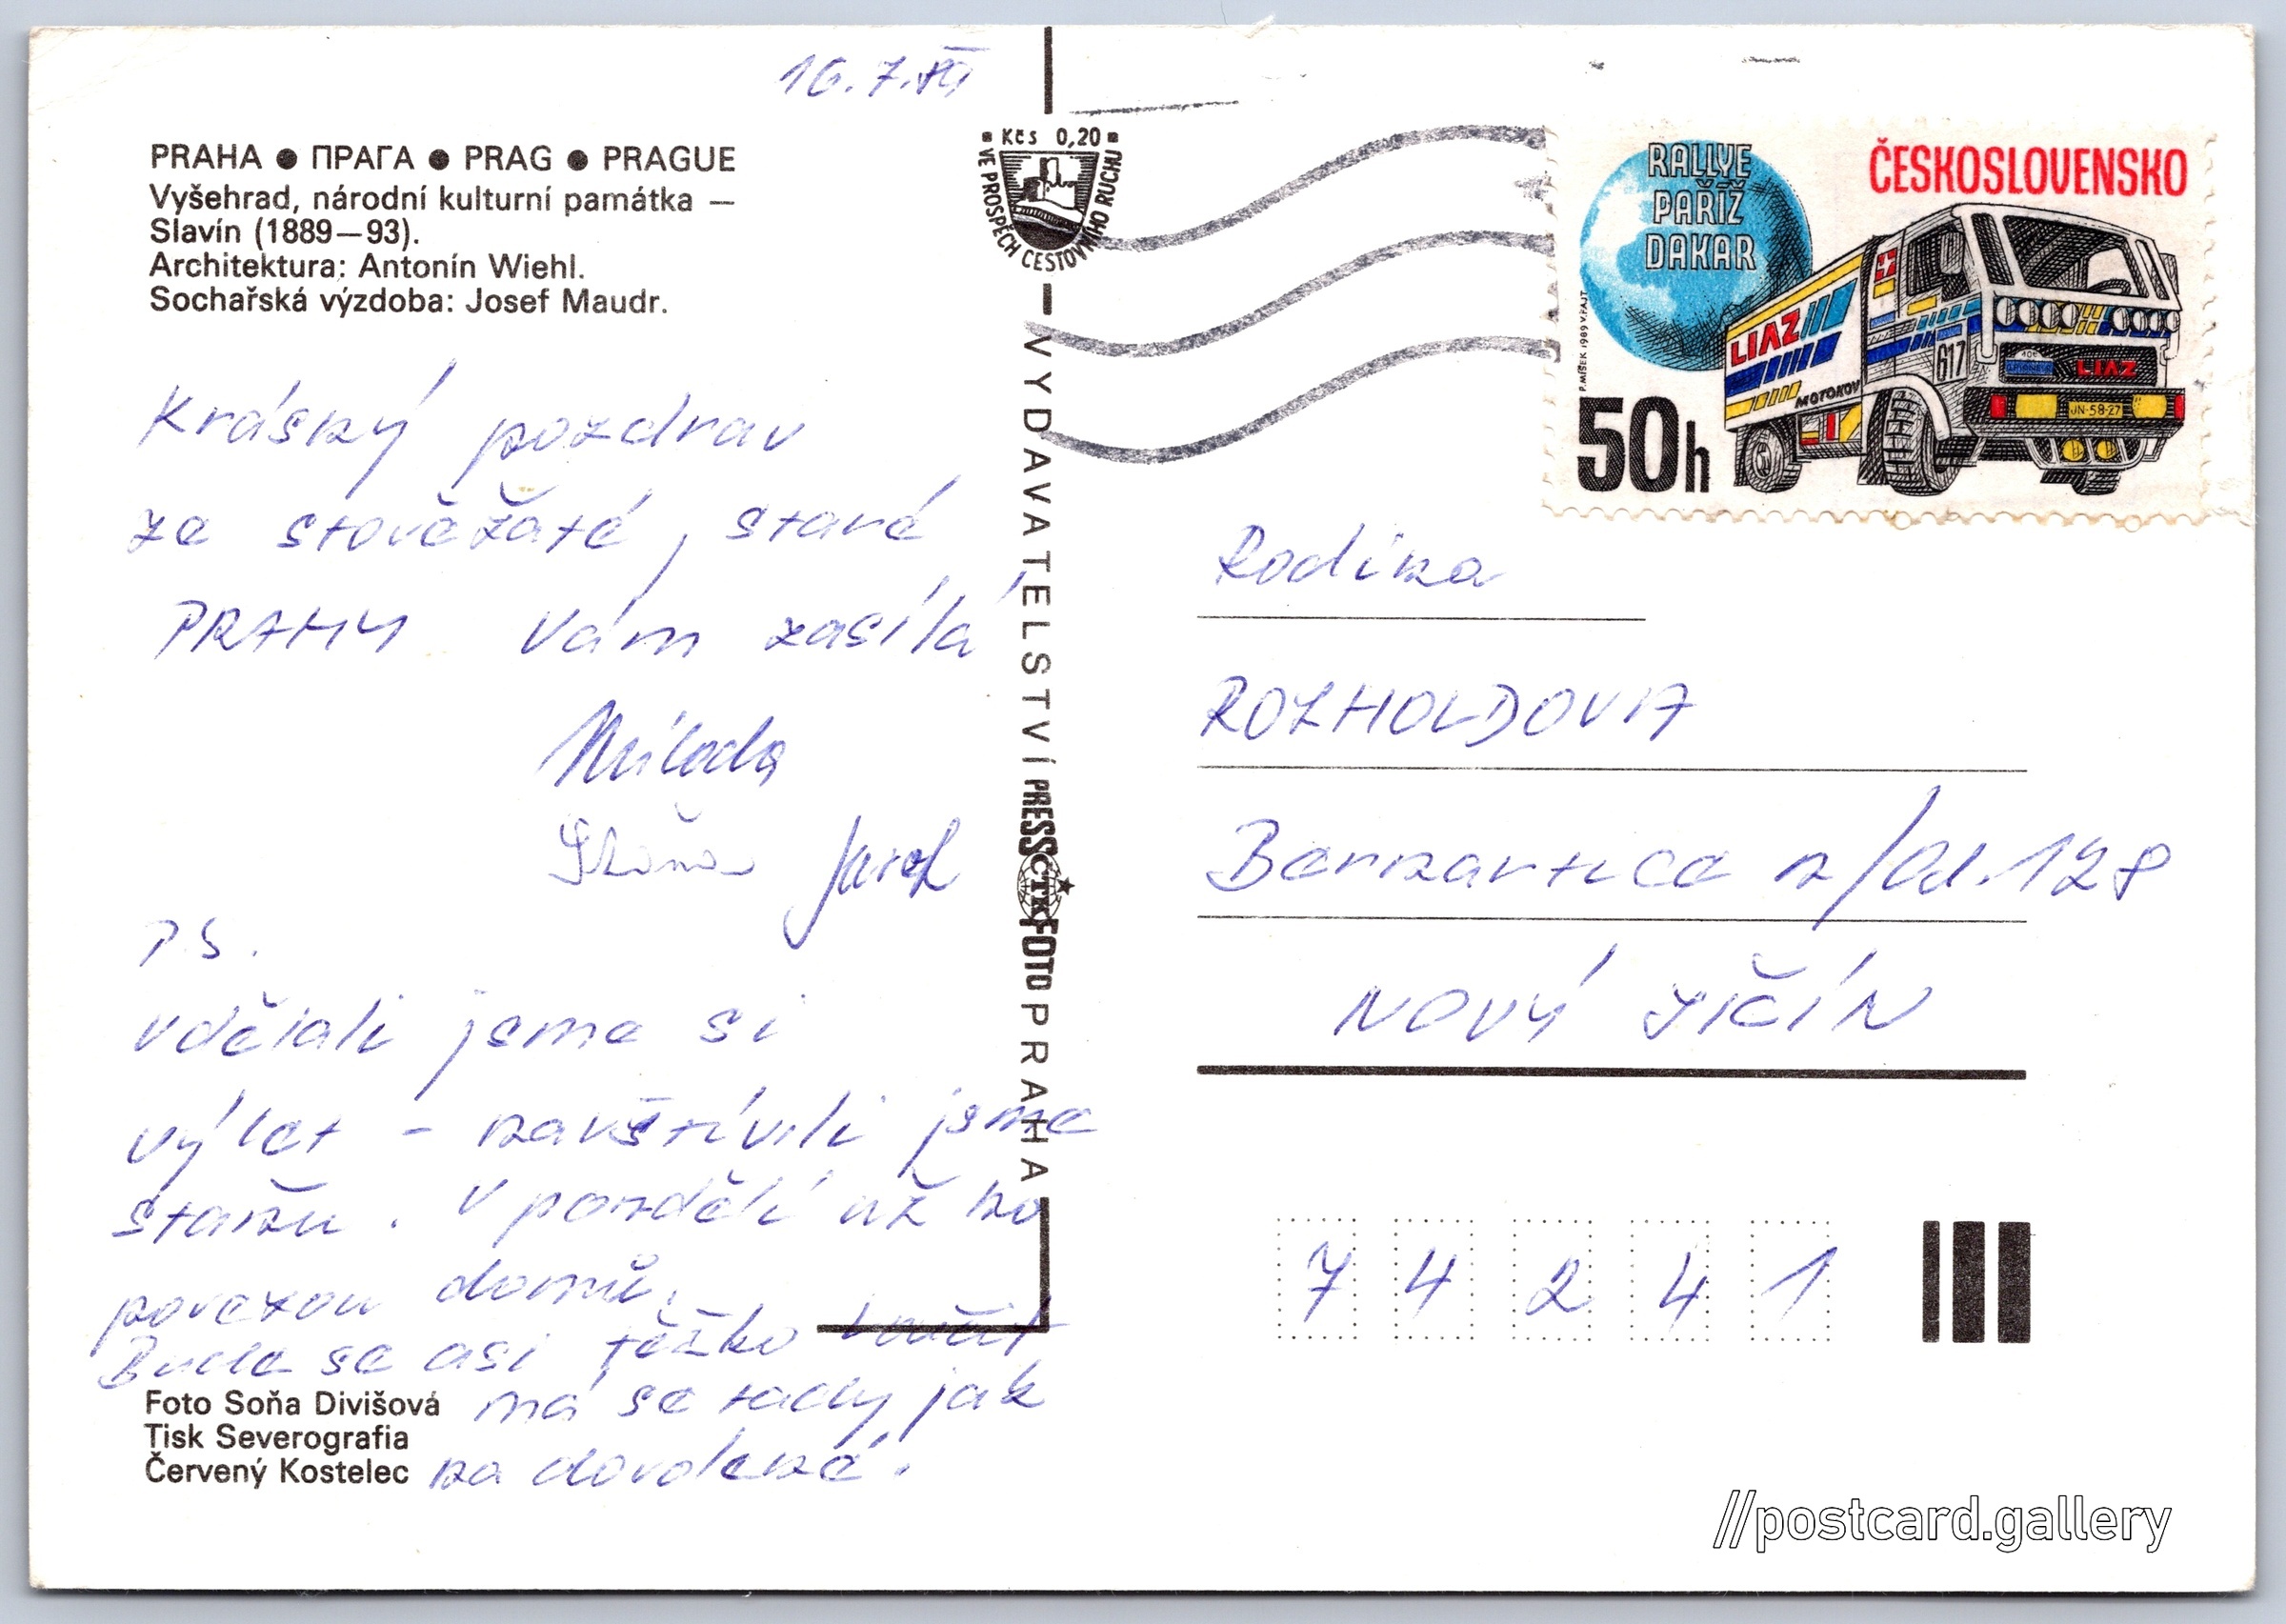 16.7.
PRAHA ● ПРАГА ● PRAG ● PRAGUE
Vyšehrad, národní kulturní památka —
Slavín (1889—93).
Architektura: Antonín Wiehl.
Sochařská výzdoba: Josef Maudr.
Krásný pozdrav
ze stověžaté, staré
PRAHY Vám zasílá
Milada
Jarek
P.S.
Vdělali jsme si
výlet - navštívili jsme
Staňu. V pondělí až ho
povezou domů,
Bude se asi těžko loučit
má se tady jak
na dovolené.
Foto Soňa Divišová
Tisk Severografia
Červený Kostelec
Kčs 0,20
VE PROSPĚCH CESTOVNÍHO RUCHU
VYDAVATELSTVÍ PRESSČTKFOTO PRAHA
RALLYE
PAŘÍŽ
DAKAR
ČESKOSLOVENSKO
P. MIŠEK 1989 V. FAJT
LIAZ
MOTOKOV
617
LIAZ
JN-58-27
50h
Rodina
ROZHOLDOVA
Bernartice n/Od. 128
NOVÝ JIČÍN
74241
//postcard.gallery